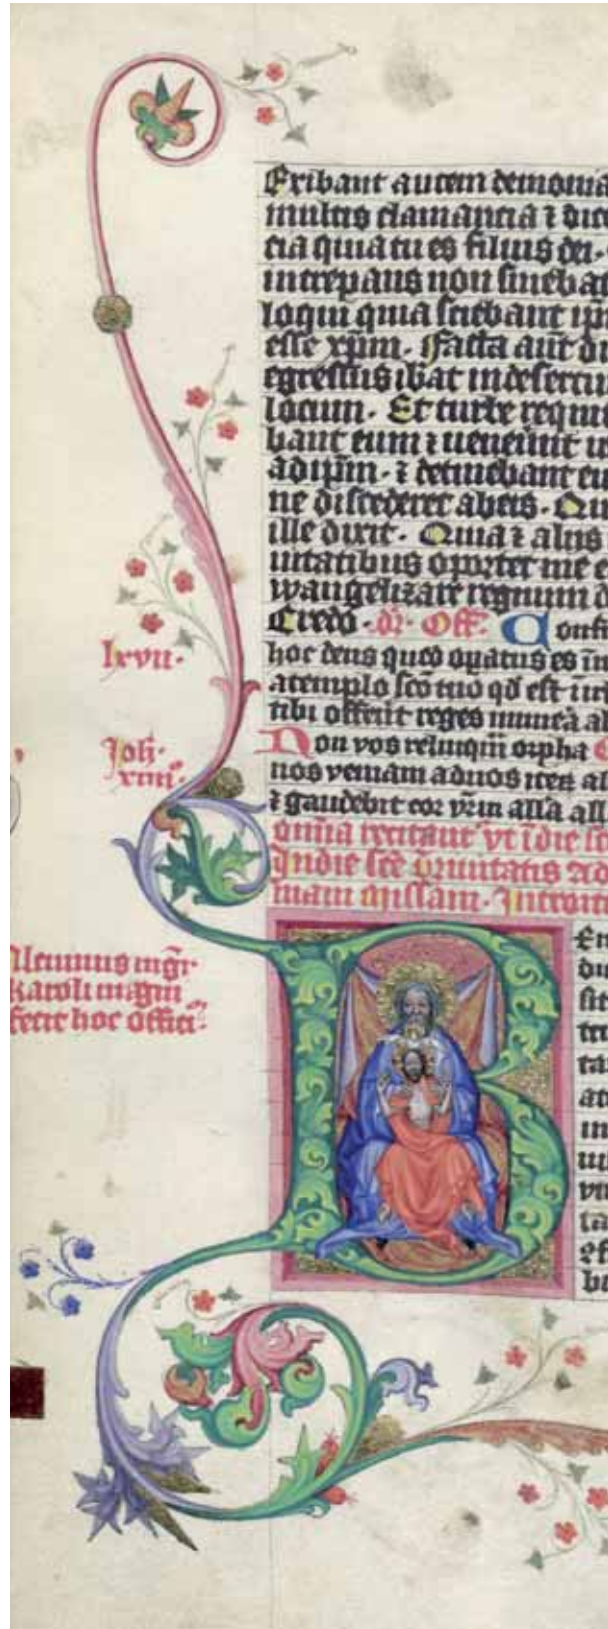 Exibant autem demonia
multis clamantia ⁊ dice
tia quia tu es filius dei ·
increpans non sineba
loqui quia sciebant ip̄
esse xp̄m · Facta aut̄ di
egressus ibat in desertu
locum · Et turbe requir
bant eum ⁊ uenerūt u
ad ip̄m · ⁊ detinebant eu
ne discederet ab eis · Qui
ille dixit · Quia ⁊ alijs
uitatibus oportet me e
wangelizare regnum d
Credo · dr̄ · Off̄ · Confi
hoc deus quod opatus es in
a templo scō tuo qd̄ est in
tibi offerūt reges munera al
Non vos relinquā orpha
lxvii ·
nos veniam ad uos iterū al
Joh ·
xiiii°
⁊ gaudebit cor vr̄m alla all
omnia
In die scē trinitatis ad
missam · Introit
Alcuinus mgr̄
karoli magni
fecit hoc offici